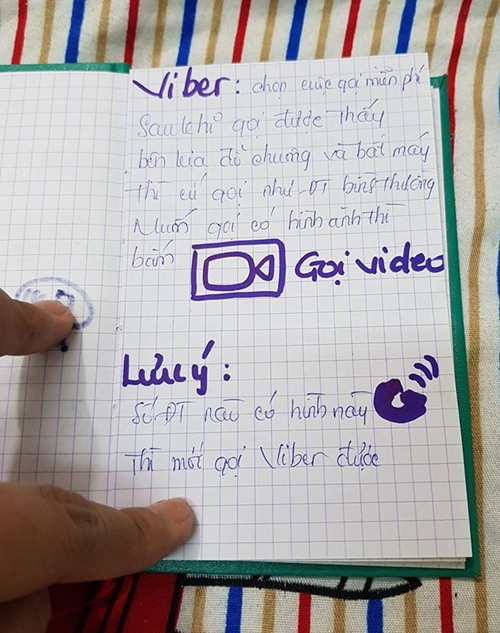 Viber: chọn cuộc gọi miễn phí
Sau khi gọi được thấy
bên kia đổ chuông và bắt máy
thì cứ gọi như ĐT bình thường
Muốn gọi có hình ảnh thì
bấm Gọi video
Lưu ý:
Số ĐT nào có hình này
thì mới gọi Viber được